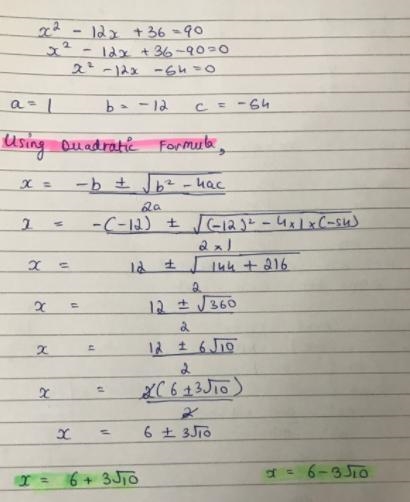 x² - 12x + 36 = 90
x² - 12x + 36 - 90 = 0
x² - 12x - 54 = 0
a = 1 b = -12 c = -54
Using Quadratic Formula,
x = -b ± √b² - 4ac
2a
x = -(-12) ± √(-12)² - 4 × 1 × (-54)
2 × 1
x = 12 ± √144 + 216
2
x = 12 ± √360
2
x = 12 ± 6√10
2
x = 2(6 ± 3√10)
2
x = 6 ± 3√10
x = 6 + 3√10 x = 6 - 3√10